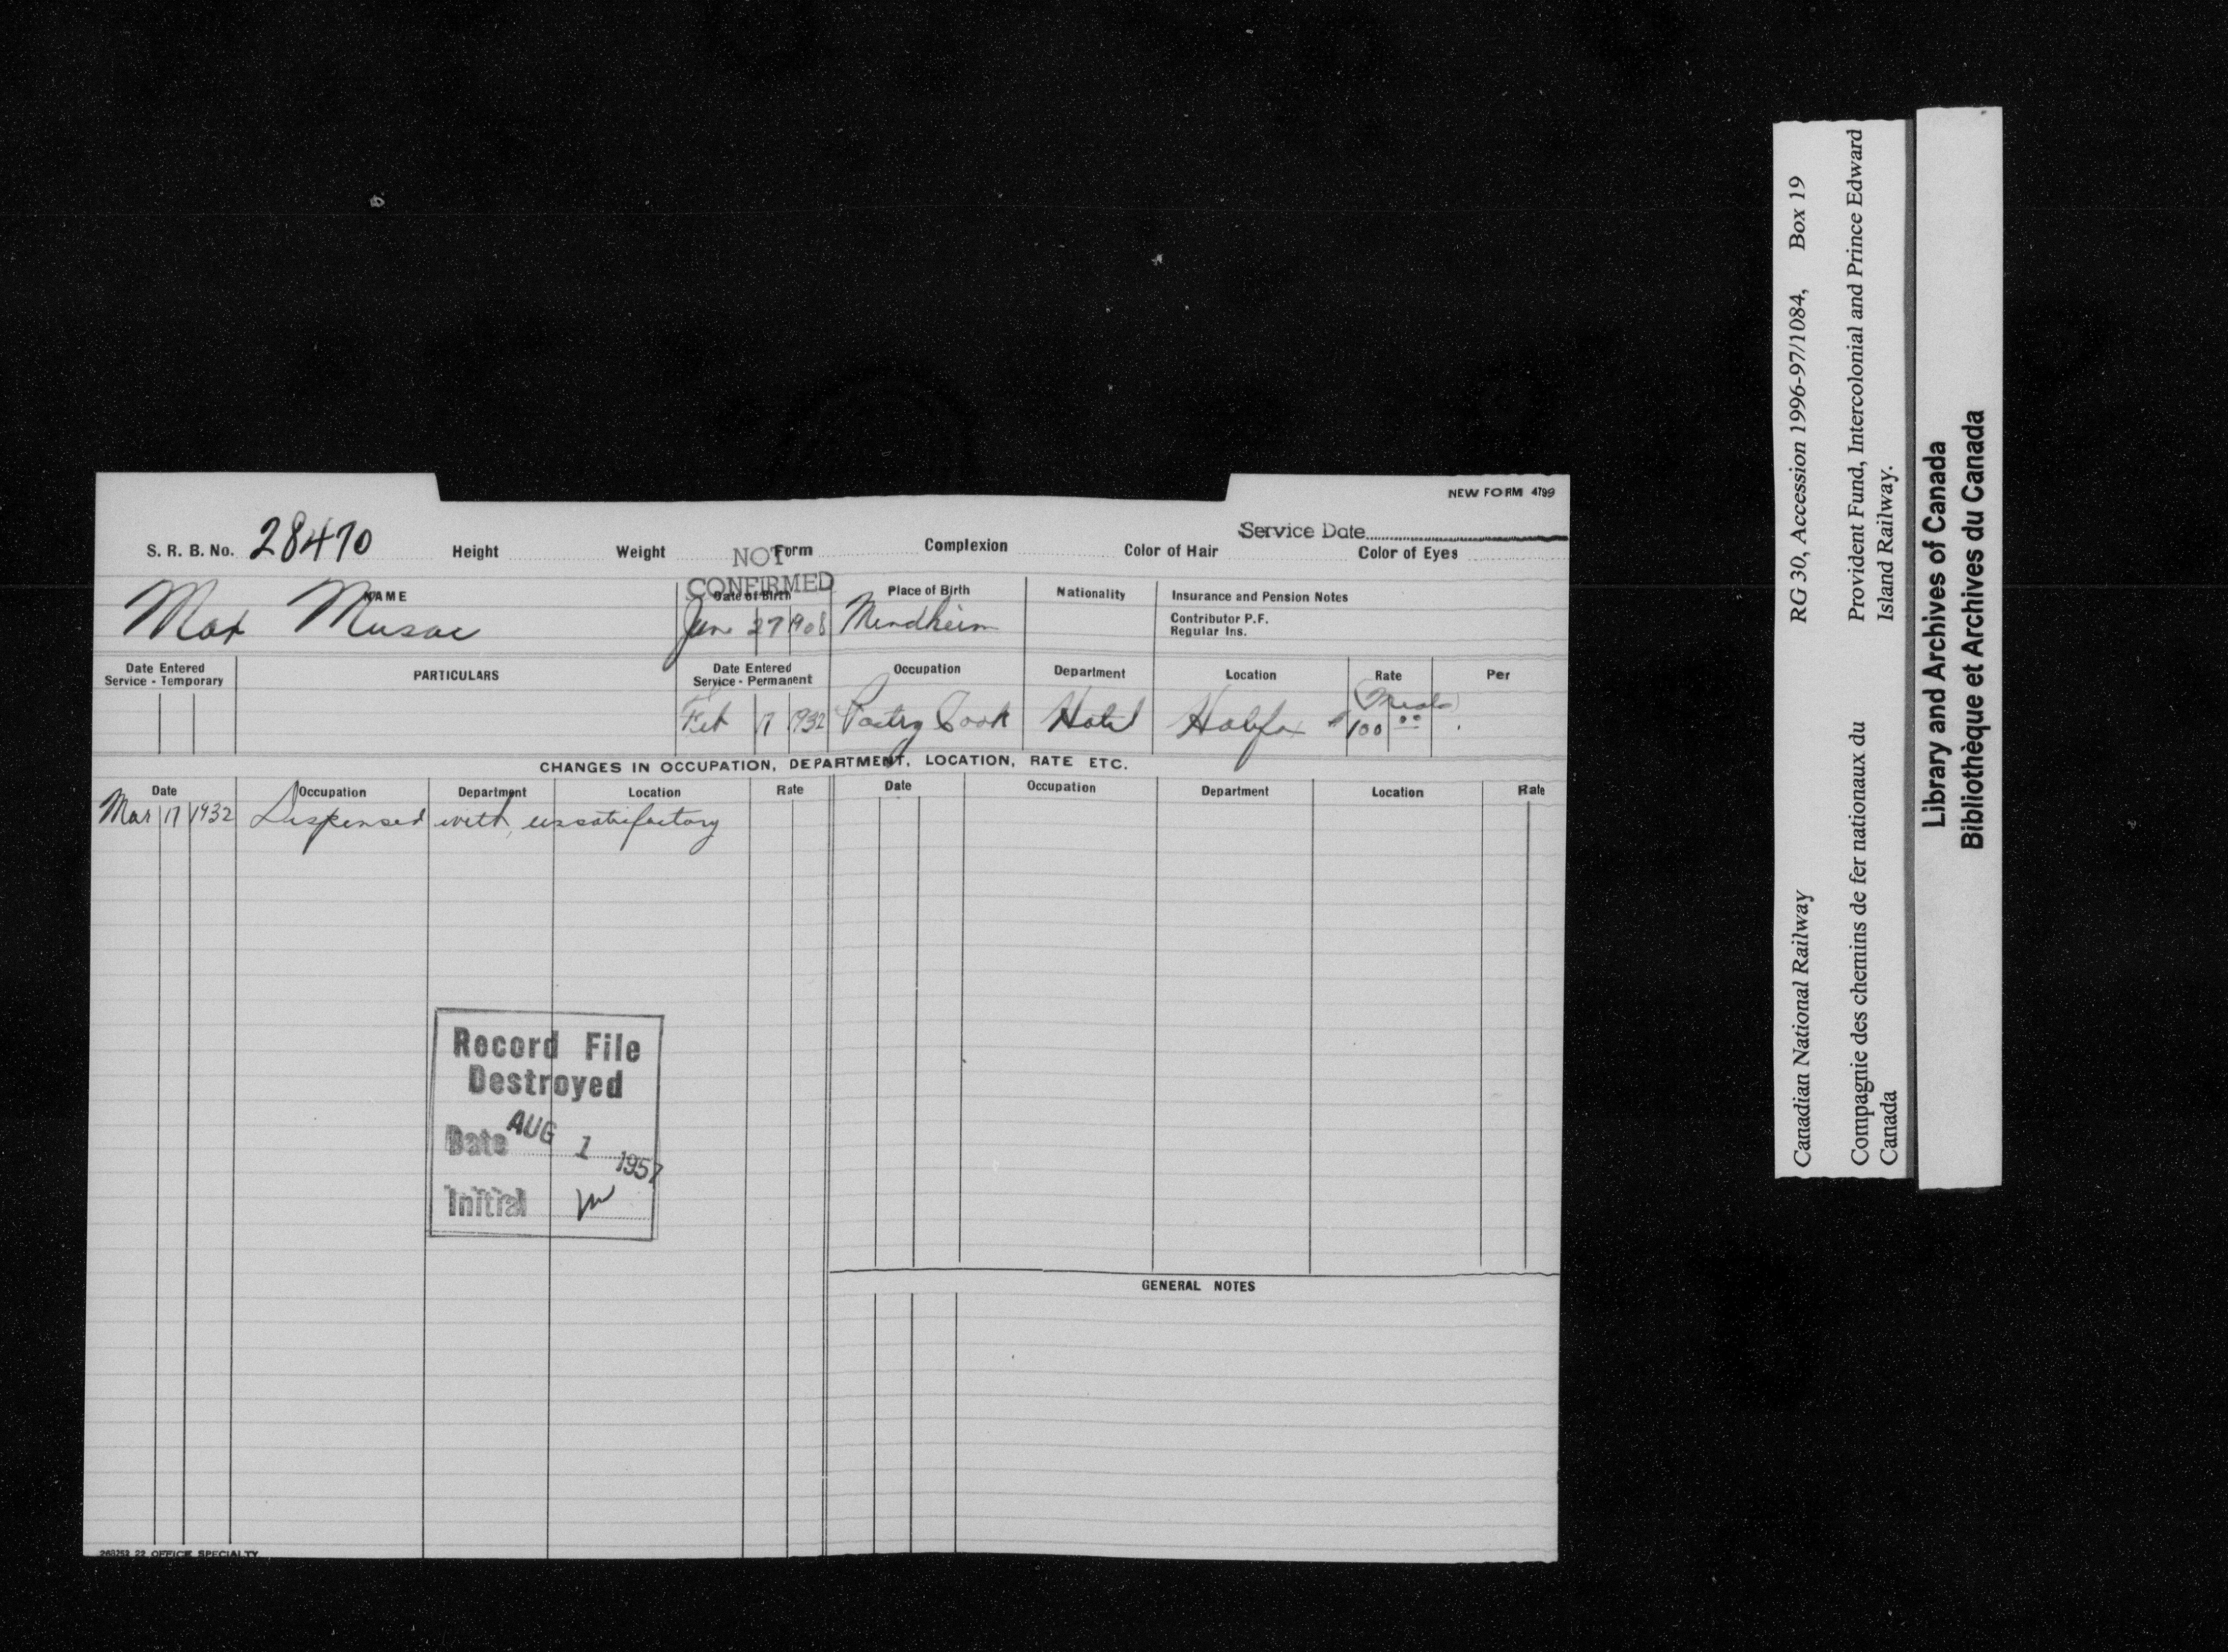 NEW FORM 4799
Service Date
S. R. B. No. 28470 Height Weight Form Complexion Color of Hair Color of Eyes
NOT
CONFIRMED
NAME Date of Birth Place of Birth Nationality Insurance and Pension Notes
Max Musac 27 1908 Mendheim
Contributor P.F.
Regular Ins.
Date Entered
Service - Temporary PARTICULARS Date Entered
Service - Permanent Occupation Department Location Rate Per
(Meals)
Feb 17 1932 Pastry Cook Hotel Halifax $100 00
CHANGES IN OCCUPATION, DEPARTMENT, LOCATION, RATE ETC.
Date Occupation Department Location Rate Date Occupation Department Location Rate
Mar 17 1932 Dispensed with, unsatisfactory
Record File
Destroyed
Date AUG 1 1957
Initial
GENERAL NOTES
22 OFFICE SPECIALTY
Canadian National Railway RG 30, Accession 1996-97/1084, Box 19
Compagnie des chemins de fer nationaux du Provident Fund, Intercolonial and Prince Edward
Canada Island Railway.
Library and Archives of Canada
Bibliothèque et Archives du Canada